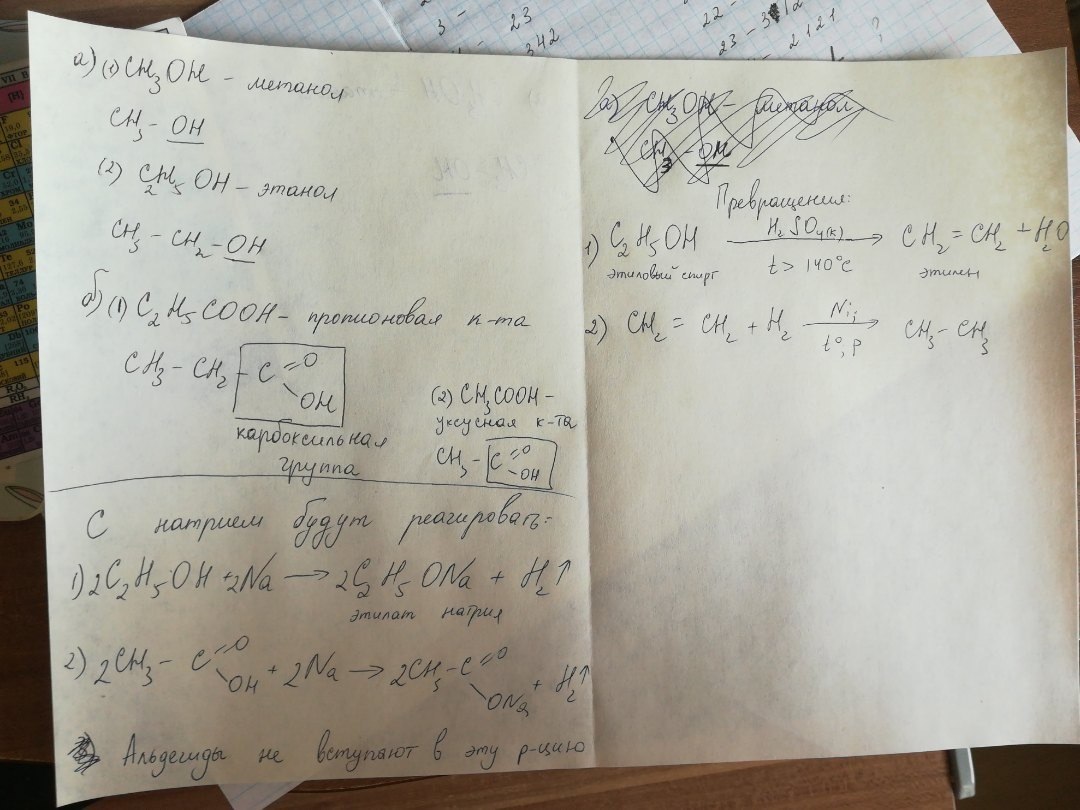 3 - 23
342
22 -
23 - 3112
2121
?
VII B
а) (1) CH₃OH - метанол
CH₃ - OH
(2) C₂H₅OH - этанол
CH₃ - CH₂ - OH
б) (1) C₂H₅COOH - пропионовая к-та
CH₃ - CH₂ - C =O
OH
карбоксильная
группа
(2) CH₃COOH -
уксусная к-та
CH₃ - C =O
- OH
С натрием будут реагировать:
1) 2C₂H₅OH + 2Na → 2C₂H₅ONa + H₂↑
этилат натрия
2) 2CH₃ - C =O \OH + 2Na → 2CH₃ - C =O \ONa + H₂↑
Альдегиды не вступают в эту р-цию
а) CH₃OH - метанол
CH₃ - OH
Превращения:
1) C₂H₅OH H₂SO₄(к) t > 140°C → CH₂ = CH₂ + H₂O
этиловый спирт этилен
2) CH₂ = CH₂ + H₂ Ni; t°, p → CH₃ - CH₃